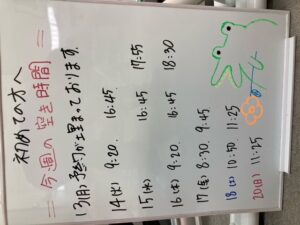 初めての方へ
= 今週の空き時間 =
13(月)予約が埋まっております。
14(火) 9:20. 16:45
15(水) 16:45 17:55
16(木) 9:20. 16:45 18:30
17(金) 8:30. 9:45
18(土) 10:50 11:25
20(月) 11:25